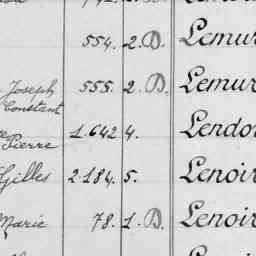 554. 2. D. Lemur
Joseph 555. 2. D. Lemur
Constant
1.642 4. Lendo
Pierre
Gilles 2.184. 5. Lenoir
Marie 78. 1. D. Lenoir